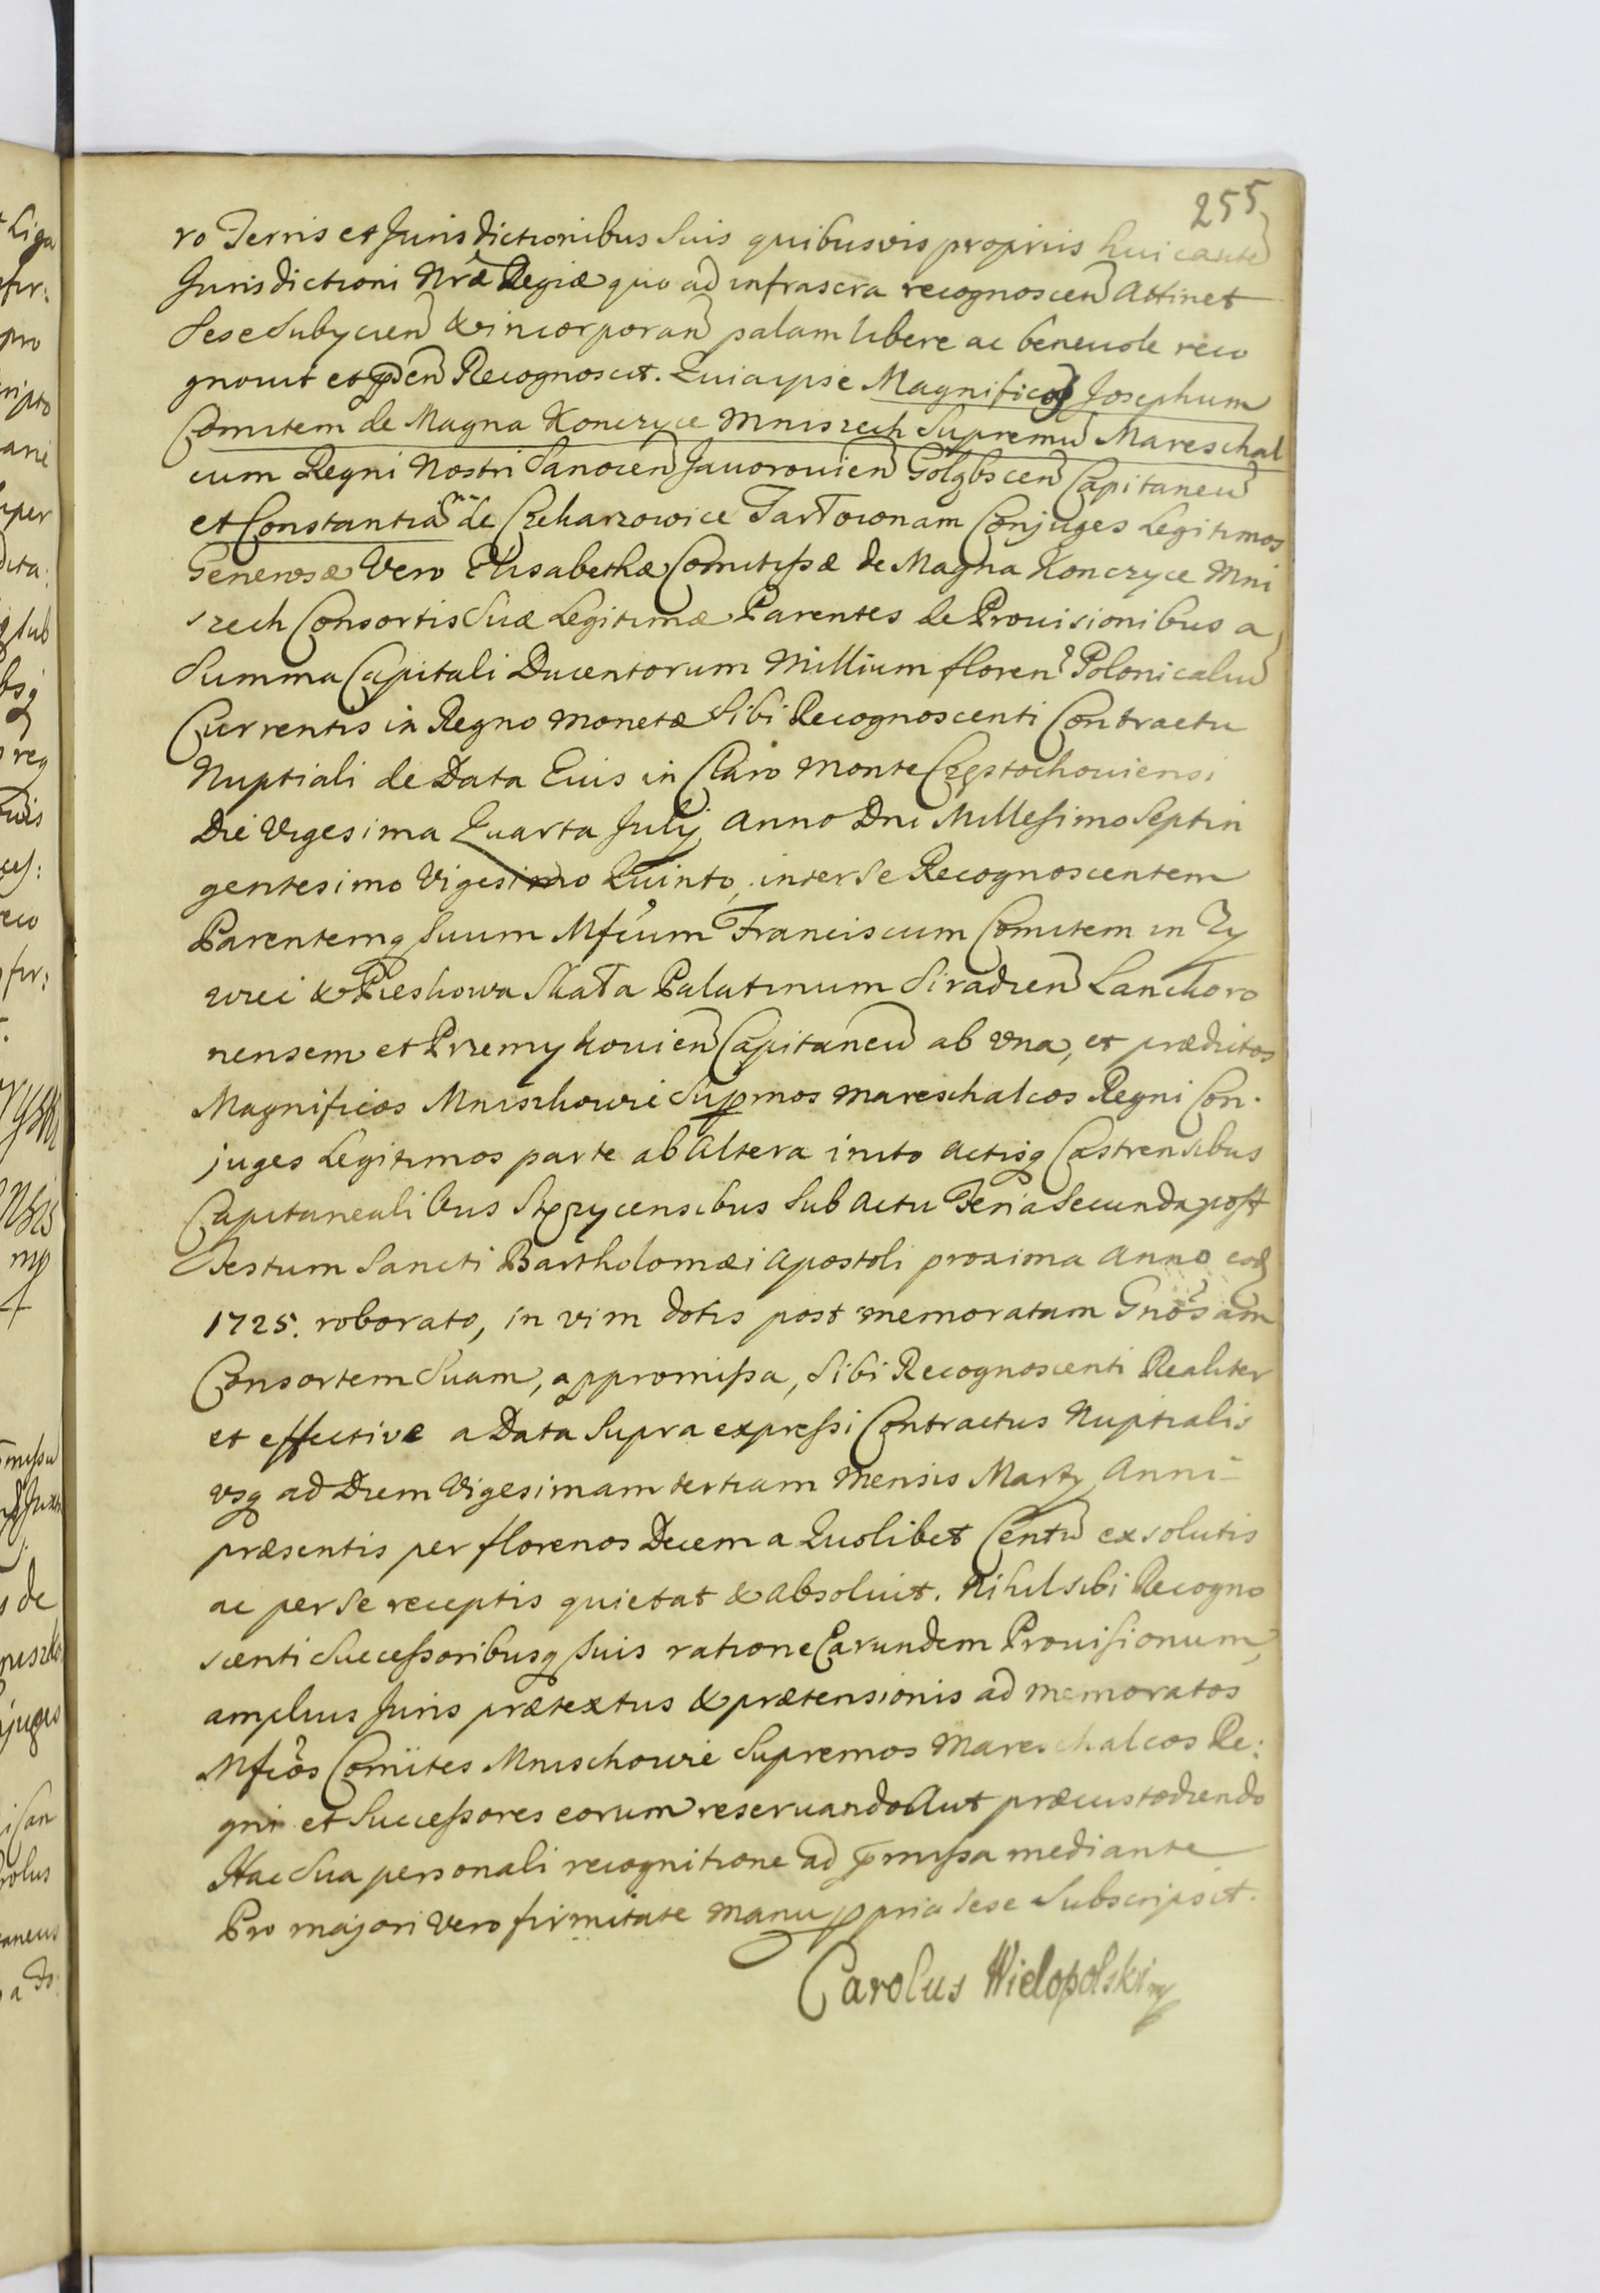 255
ro Terris et Jurisdictionibus Suis quibusvis propriis huicaute
Jurisdictioni Nrae Regiae quo ad infrascra recognoscen attinet
Sese Subycien & incorporan palam libere ac beneuole reco
gnouit et pden Recognoscit. Quia ipse Magnificos Josephum
Comitem de Magna Konczyce Mniszech Supremu Mareschal
cum Regni Nostri Sanocen Jauorouien Goląbscen Capitaneu
et Constantiam de Czekarzowice Tarłownam Conjuges Legitimos
Generosae Vero Elisabethae Comitissae de Magna Konczyce Mni
szech Consortis Suae Legitimae Parentes de Prouisionibus a
Summa Capitali Ducentorum Millium floren Polonicaliu
Currentis in Regno monetae Sibi Recognoscenti Contractu
Nuptiali de Data Eius in Claro Monte Częstochouiensi
Die Vigesima Quarta Julij Anno Dni Millesimo Septin
gentesimo Vigesimo Quinto, inter Se Recognoscentem
Parentemq Suum Mfcum Franciscum Comitem in Zy
wiec & Pieskowa Skała Palatinum Siradien Lanckoro
nensem et Przemykouien Capitaneu ab vna, et praedictos
Magnificos Mniszchowie Supmos mareschalcos Regni Con.
juges Legitimos parte ab altera inito actisq Castrensibus
Capitanealibus Sżczycensibus Sub actu Feria Secunda post
Festum Sancti Bartholomaei Apostoli proxima Anno eod
1725. roborato, in vim dotis post memoratam Gnosam
Consortem Suam, appromissa, Sibi Recognoscenti Realiter
et effective a Data Supra expressi Contractus Nuptialis
vsq ad Diem Vigesimam tertiam Mensis Martij Anni
praesentis per florenos Decem a Quolibet Centu exsolutis
ac per Se receptis quietat & absoluit. Nihil sibi Recogno
scenti Successoribusq suis ratione Earundem Prouisionum,
amplius Juris praetextus & praetensionis ad memoratos
Mfcos Comites Mnischowie Supremos Mareschalcos Re:
gni et Successores eorum reseruando Aut praecustodiendo
Hac Sua personali recognitione ad pmissa mediante
Pro majori vero firmitate manu ppria Sese Subscripsit.
Carolus Wielopolski mp